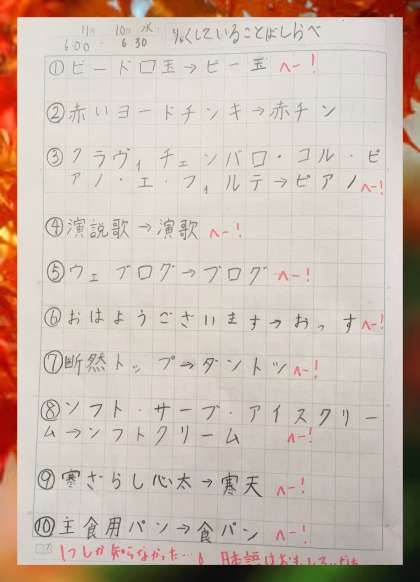 11月 10日 水 りゃくしていることばしらべ
6:00 6:30
①ビードロ玉→ビー玉 へー!
②赤いヨードチンキ→赤チン
③クラヴィチェンバロ・コル・ピ
アノ・エ・フィルテ→ピアノ へー!
④演説歌→演歌 へー!
⑤ウェブログ→ブログ へー!
⑥おはようございます→おっす へー!
⑦断然トップ→ダントツ へー!
⑧ソフト・サーブ・アイスクリー
ム→ソフトクリーム へー!
⑨寒ざらし心太→寒天 へー!
⑩主食用パン→食パン へー!
1つしか知らなかった… 日本語は